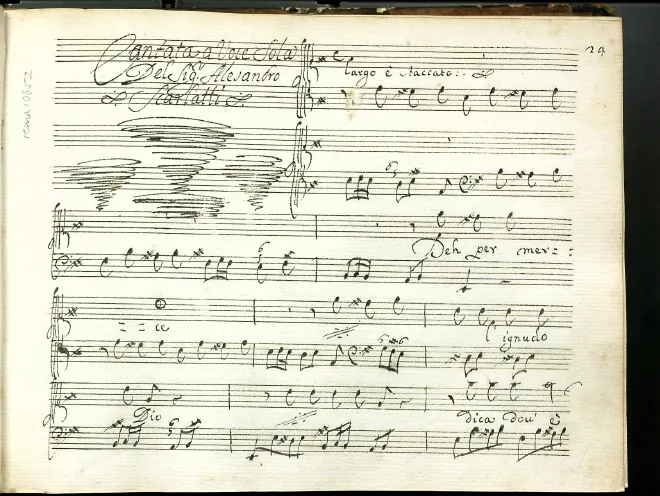 Cantata a Voce Sola
Del Sig.r Alesandro
Scarlatti
24
Largo è staccato
Deh per mer= =
= = ce
l'ignudo
Dio
dica dou' è